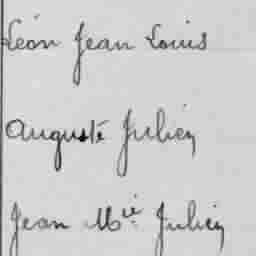 Léon Jean Louis
Auguste Julien
Jean Mie Julien